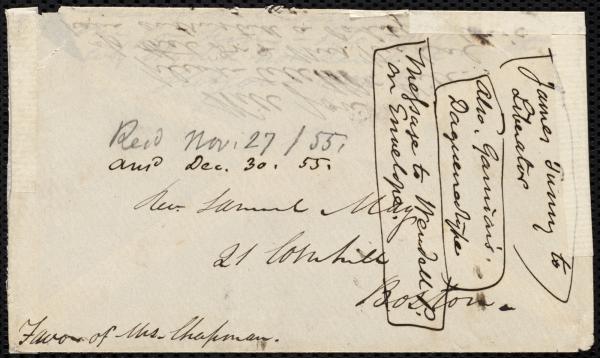 Recd Nov. 27 / 55.
ansd Dec. 30. 55.
Rev. Samuel May
21 Cornhill
Boston.
Favor of Mrs. Chapman.
James to
Liberator
Also. Garrison's.
Daguerreotype
Message to Wendell P.
on Envelope.